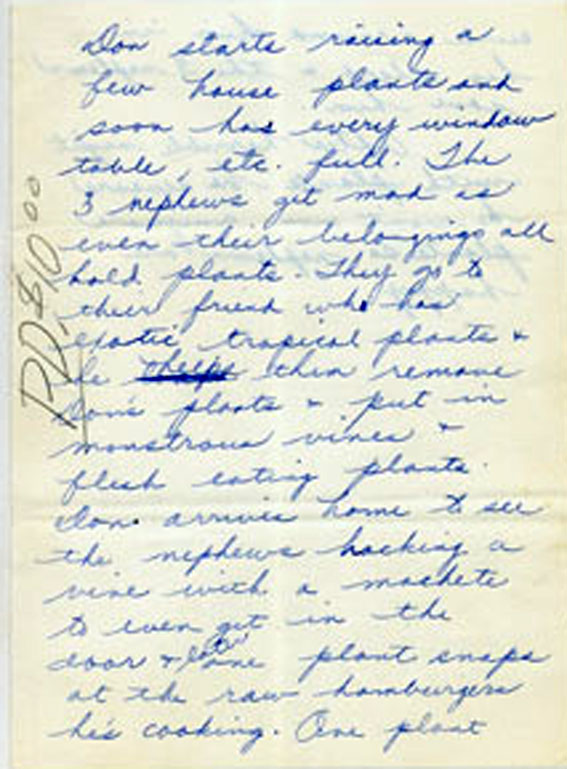 Don starts raising a
few house plants and
soon has every window
table, etc. full. The
3 nephews get mad as
even their belongings all
hold plants. They go to
their friend who has
exotic tropical plants &
he them remove
Don's plants & put in
monstrous vines &
flesh eating plants.
Don arrives home to see
the nephews hacking a
vine with a machete
to even get in the
door & later one plant snaps
at the raw hamburgers
he's cooking. One plant
PD. $10.00